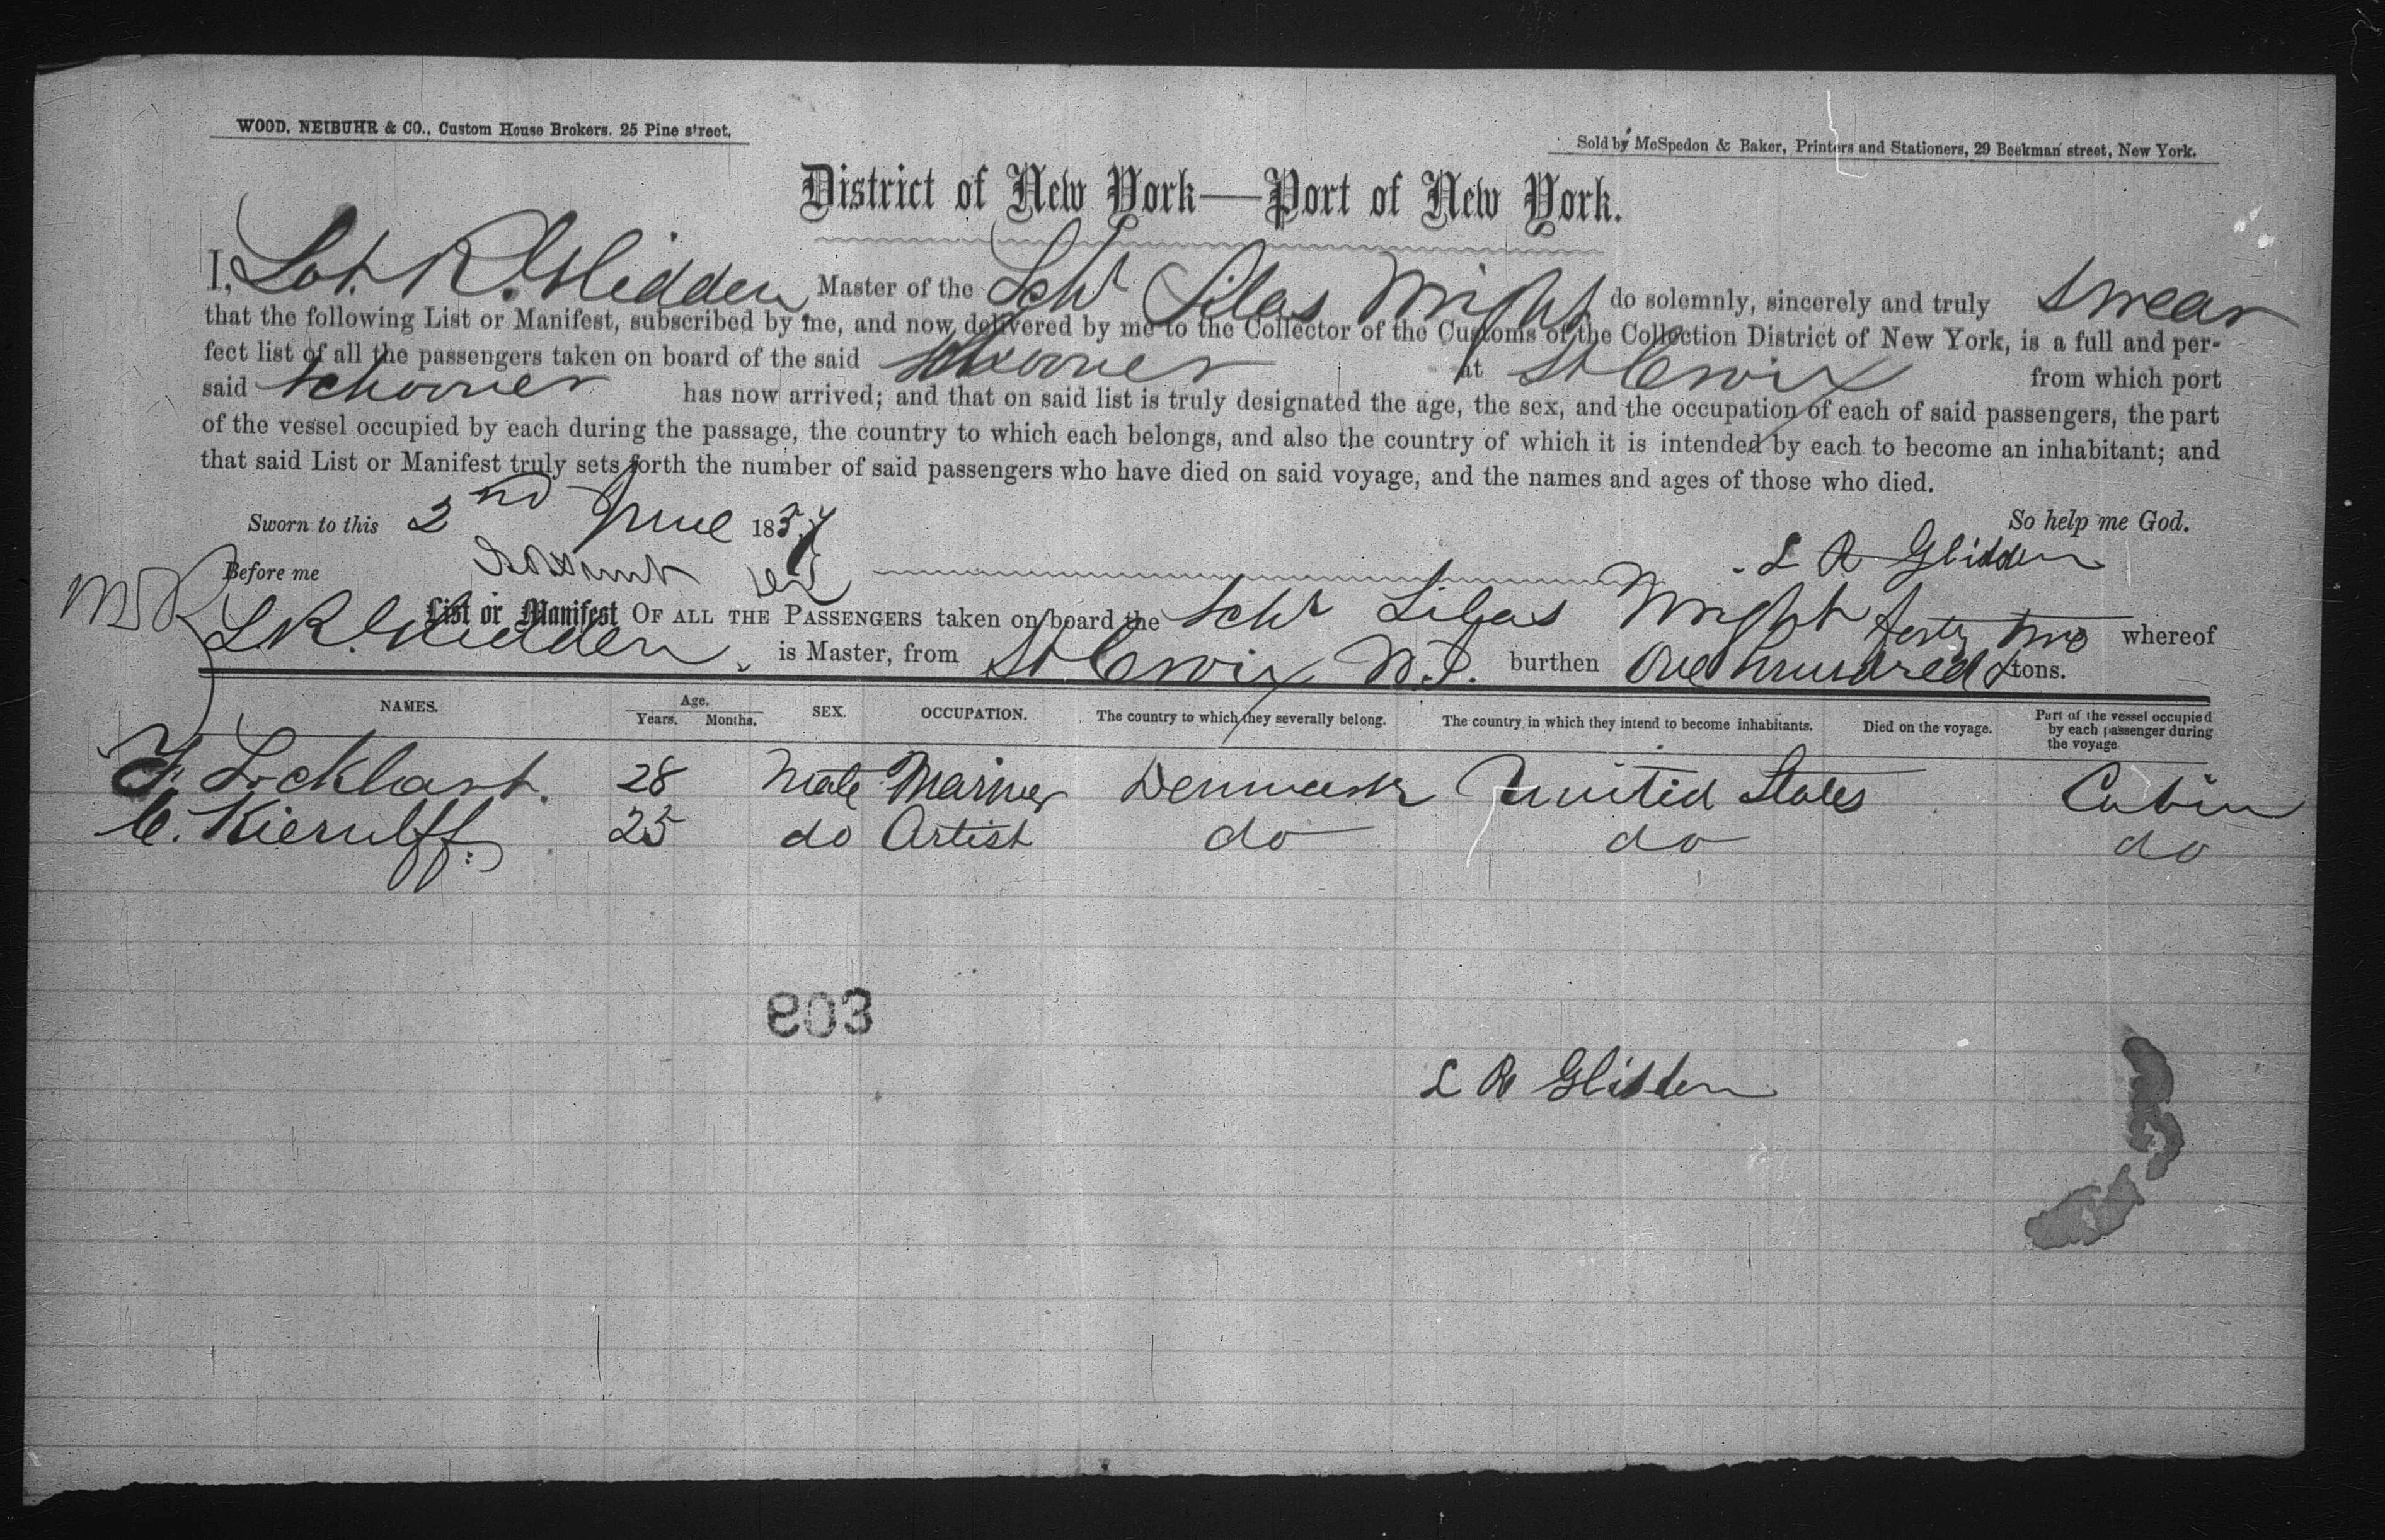 WOOD, NEIBUHR & CO., Custom House Brokers. 25 Pine street.
Sold by McSpedon & Baker, Printers and Stationers, 29 Beekman street, New York.
District of New York—Port of New York.
I, Lot. R. Glidden, Master of the Schr Silas Wright do solemnly, sincerely and truly swear
that the following List or Manifest, subscribed by me, and now delivered by me to the Collector of the Customs of the Collection District of New York, is a full and per-
fect list of all the passengers taken on board of the said Schooner at St Croix from which port
said Schooner has now arrived; and that on said list is truly designated the age, the sex, and the occupation of each of said passengers, the part
of the vessel occupied by each during the passage, the country to which each belongs, and also the country of which it is intended by each to become an inhabitant; and
that said List or Manifest truly sets forth the number of said passengers who have died on said voyage, and the names and ages of those who died.
Sworn to this 2nd June 1857 So help me God.
Before me L R Glidden
List or Manifest OF ALL THE PASSENGERS taken on board the Schr Silas Wright whereof
L.R. Glidden, is Master, from St Croix W.I. burthen One hundred & forty two tons.
NAMES. Age. Years. Months. SEX. OCCUPATION. The country to which they severally belong. The country in which they intend to become inhabitants. Died on the voyage. Part of the vessel occupied by each passenger during the voyage
F. Locklart. 28 Male Mariner Denmark United States Cabin
C. Kierulff. 25 do Artist do do do
803
L R Glidden